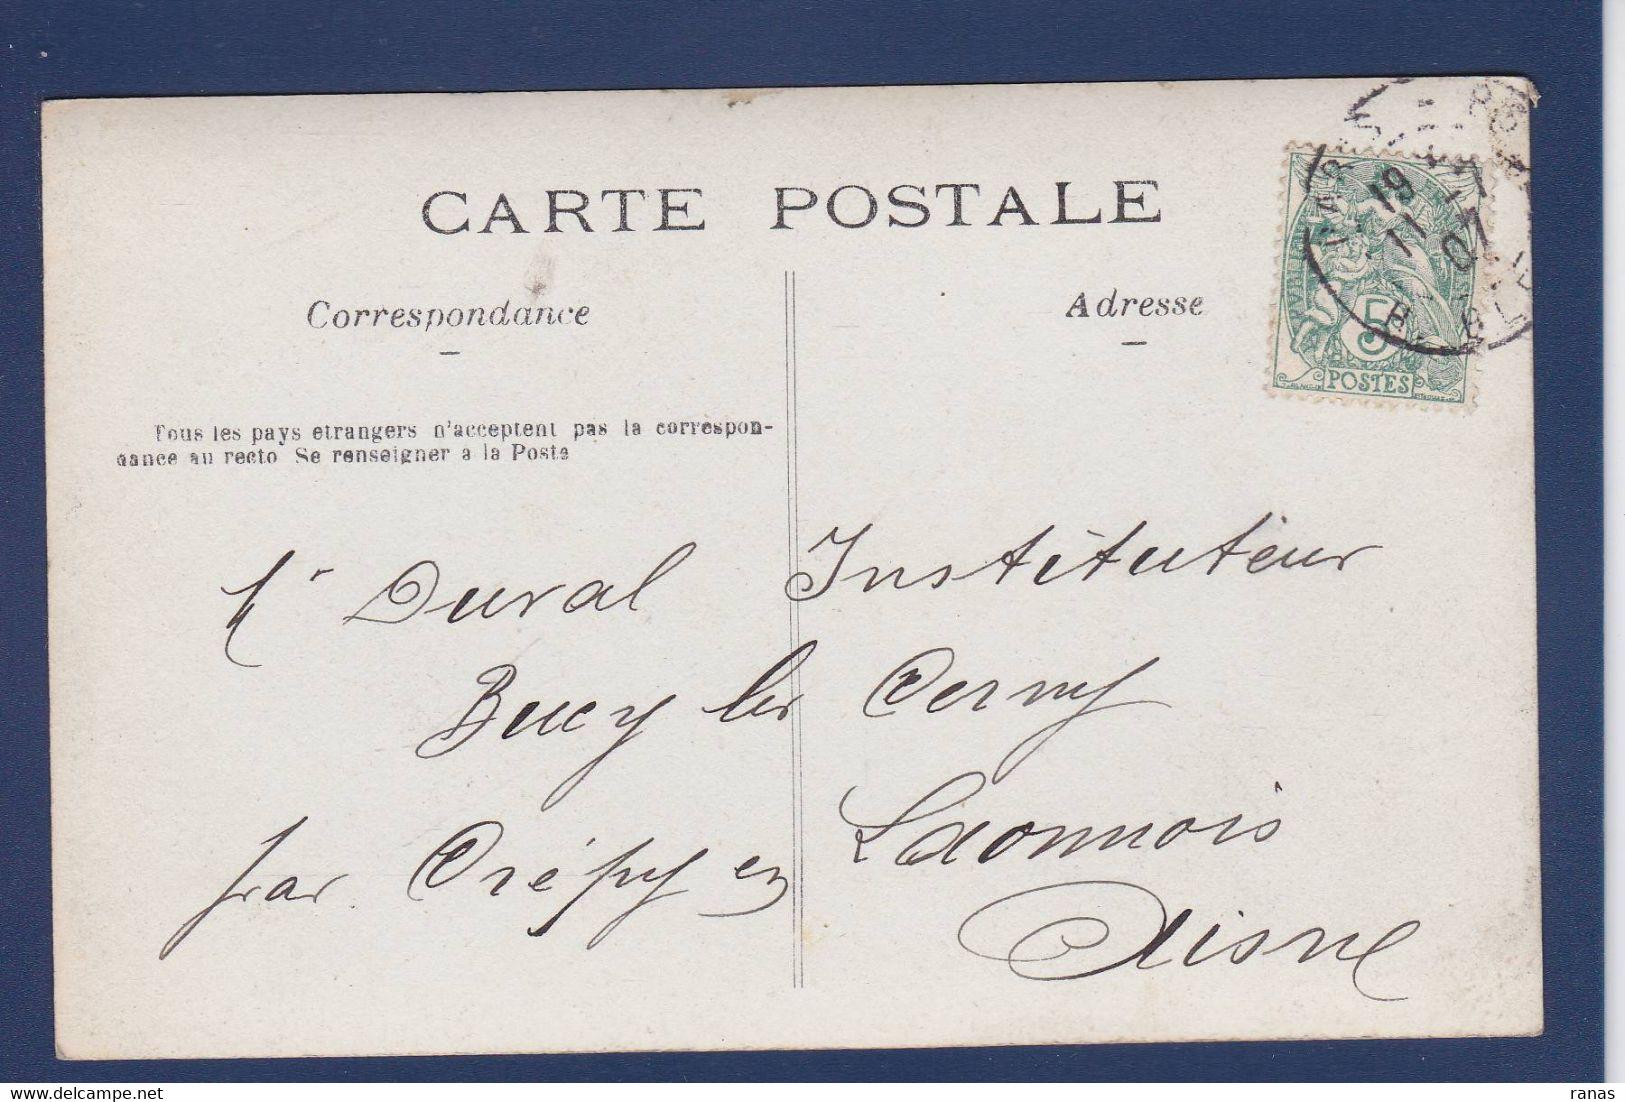 CARTE POSTALE
Correspondance
Adresse
Tous les pays etrangers n'acceptent pas la correspon-
dance au recto Se renseigner a la Poste
5
POSTES
19
11 07
Mr Duval Instituteur
Bucy les Cerny
par Crépy en Laonnois
Aisne
ranas